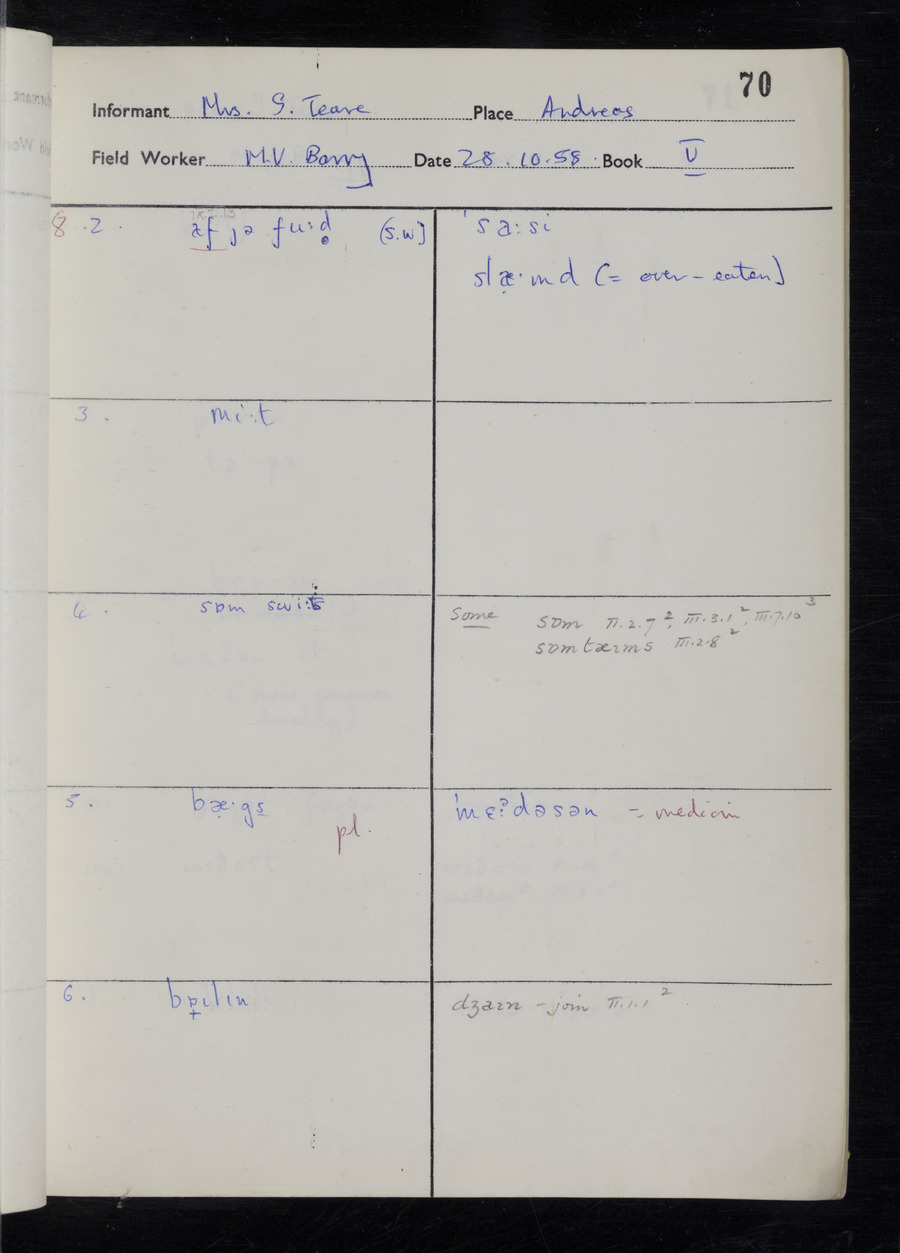 70
Informant Mrs. S. Teare Place Andreas
Field Worker M.V. Barry Date 28.10.58. Book V
8.2. æf jə fu:d (S.W) ˈsa:si
slæ̣·md (= over-eaten)
3. mi:t
4. sɒm swi:ts Some sɒm II.2.7², III.3.1², III.7.10³
sɒmtæɪms III.2.8²
5. bæ̣·gs ˈmɛʔdəsən = medicin
pl.
6. bɒ̟ɪlɪn dʒaɪn - join II.1.1²